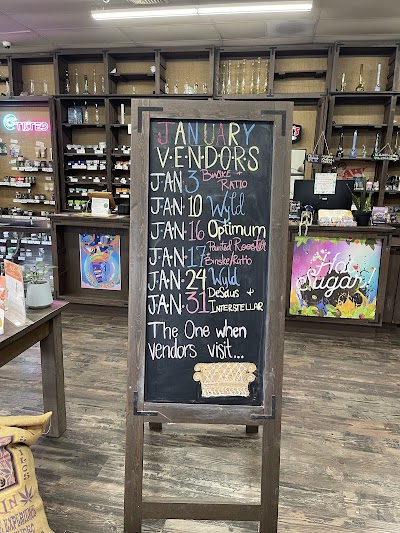 JANUARY
V·E·N·D·O·R·S
JAN·3 Binske + Ratio
JAN·10 Wyld
JAN·16 Optimum
JAN·17 Painted Rooster
Binske/Ratio
JAN·24 Wyld
JAN·31 DeSous + Interstellar
The One when
vendors visit...
Hot
Sugar!